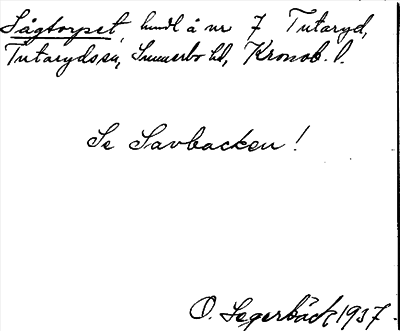 Sågtorpet, hmdl å nr 7 Tutaryd,
Tutaryds sn, Sunnerbo hd, Kronob. l.
Se Savbacken!
O. Segerbäck 1937.